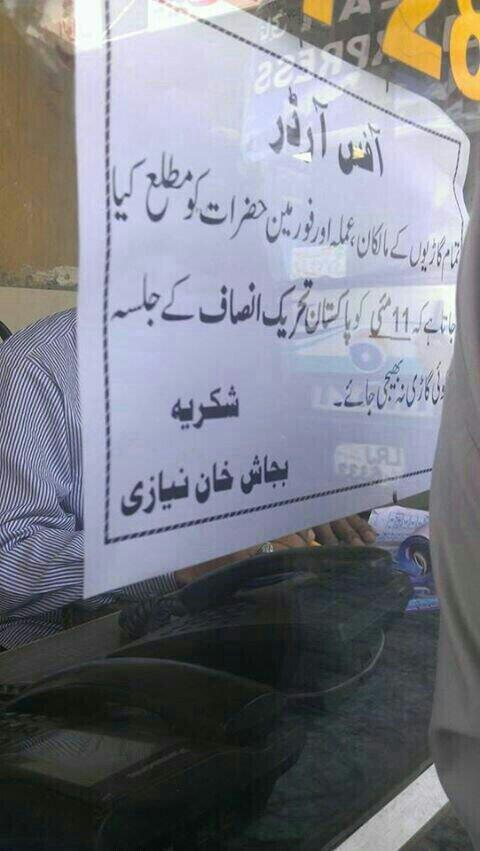 28
EXPRESS
آفس آرڈر
تمام گاڑیوں کے مالکان، عملہ اور فورمین حضرات کو مطلع کیا
جاتا ہے کہ 11 مئی کو پاکستان تحریک انصاف کے جلسہ
کوئی گاڑی نہ بھیجی جائے۔
شکریہ
بجاش خان نیازی